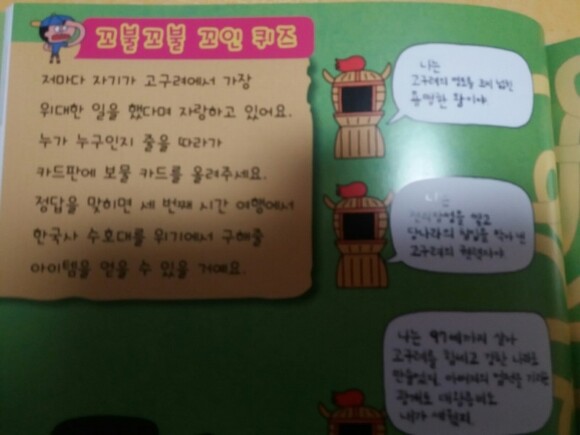 꼬불꼬불 꼬인 퀴즈
저마다 자기가 고구려에서 가장
위대한 일을 했다며 자랑하고 있어요.
누가 누구인지 줄을 따라가
카드판에 보물 카드를 올려주세요.
정답을 맞히면 세 번째 시간 여행에서
한국사 수호대를 위기에서 구해줄
아이템을 얻을 수 있을 거예요.
나는
고구려의 영토를 크게 넓힌
용맹한 왕이야
나는
당나라의 침입을 막아 낸
고구려의
나는 97세까지 살아
고구려를 힘세고 강한 나라로
만들었지. 아버지의 업적을 기리는
광개토 대왕릉비도
내가 세웠지.